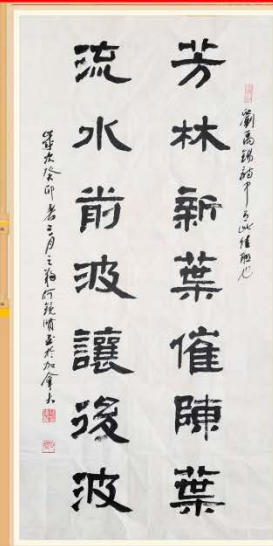 劉禹錫詩中此佳聯也
芳林新葉催陳葉
流水前波讓後波
歲次癸卯春三月之於加拿大